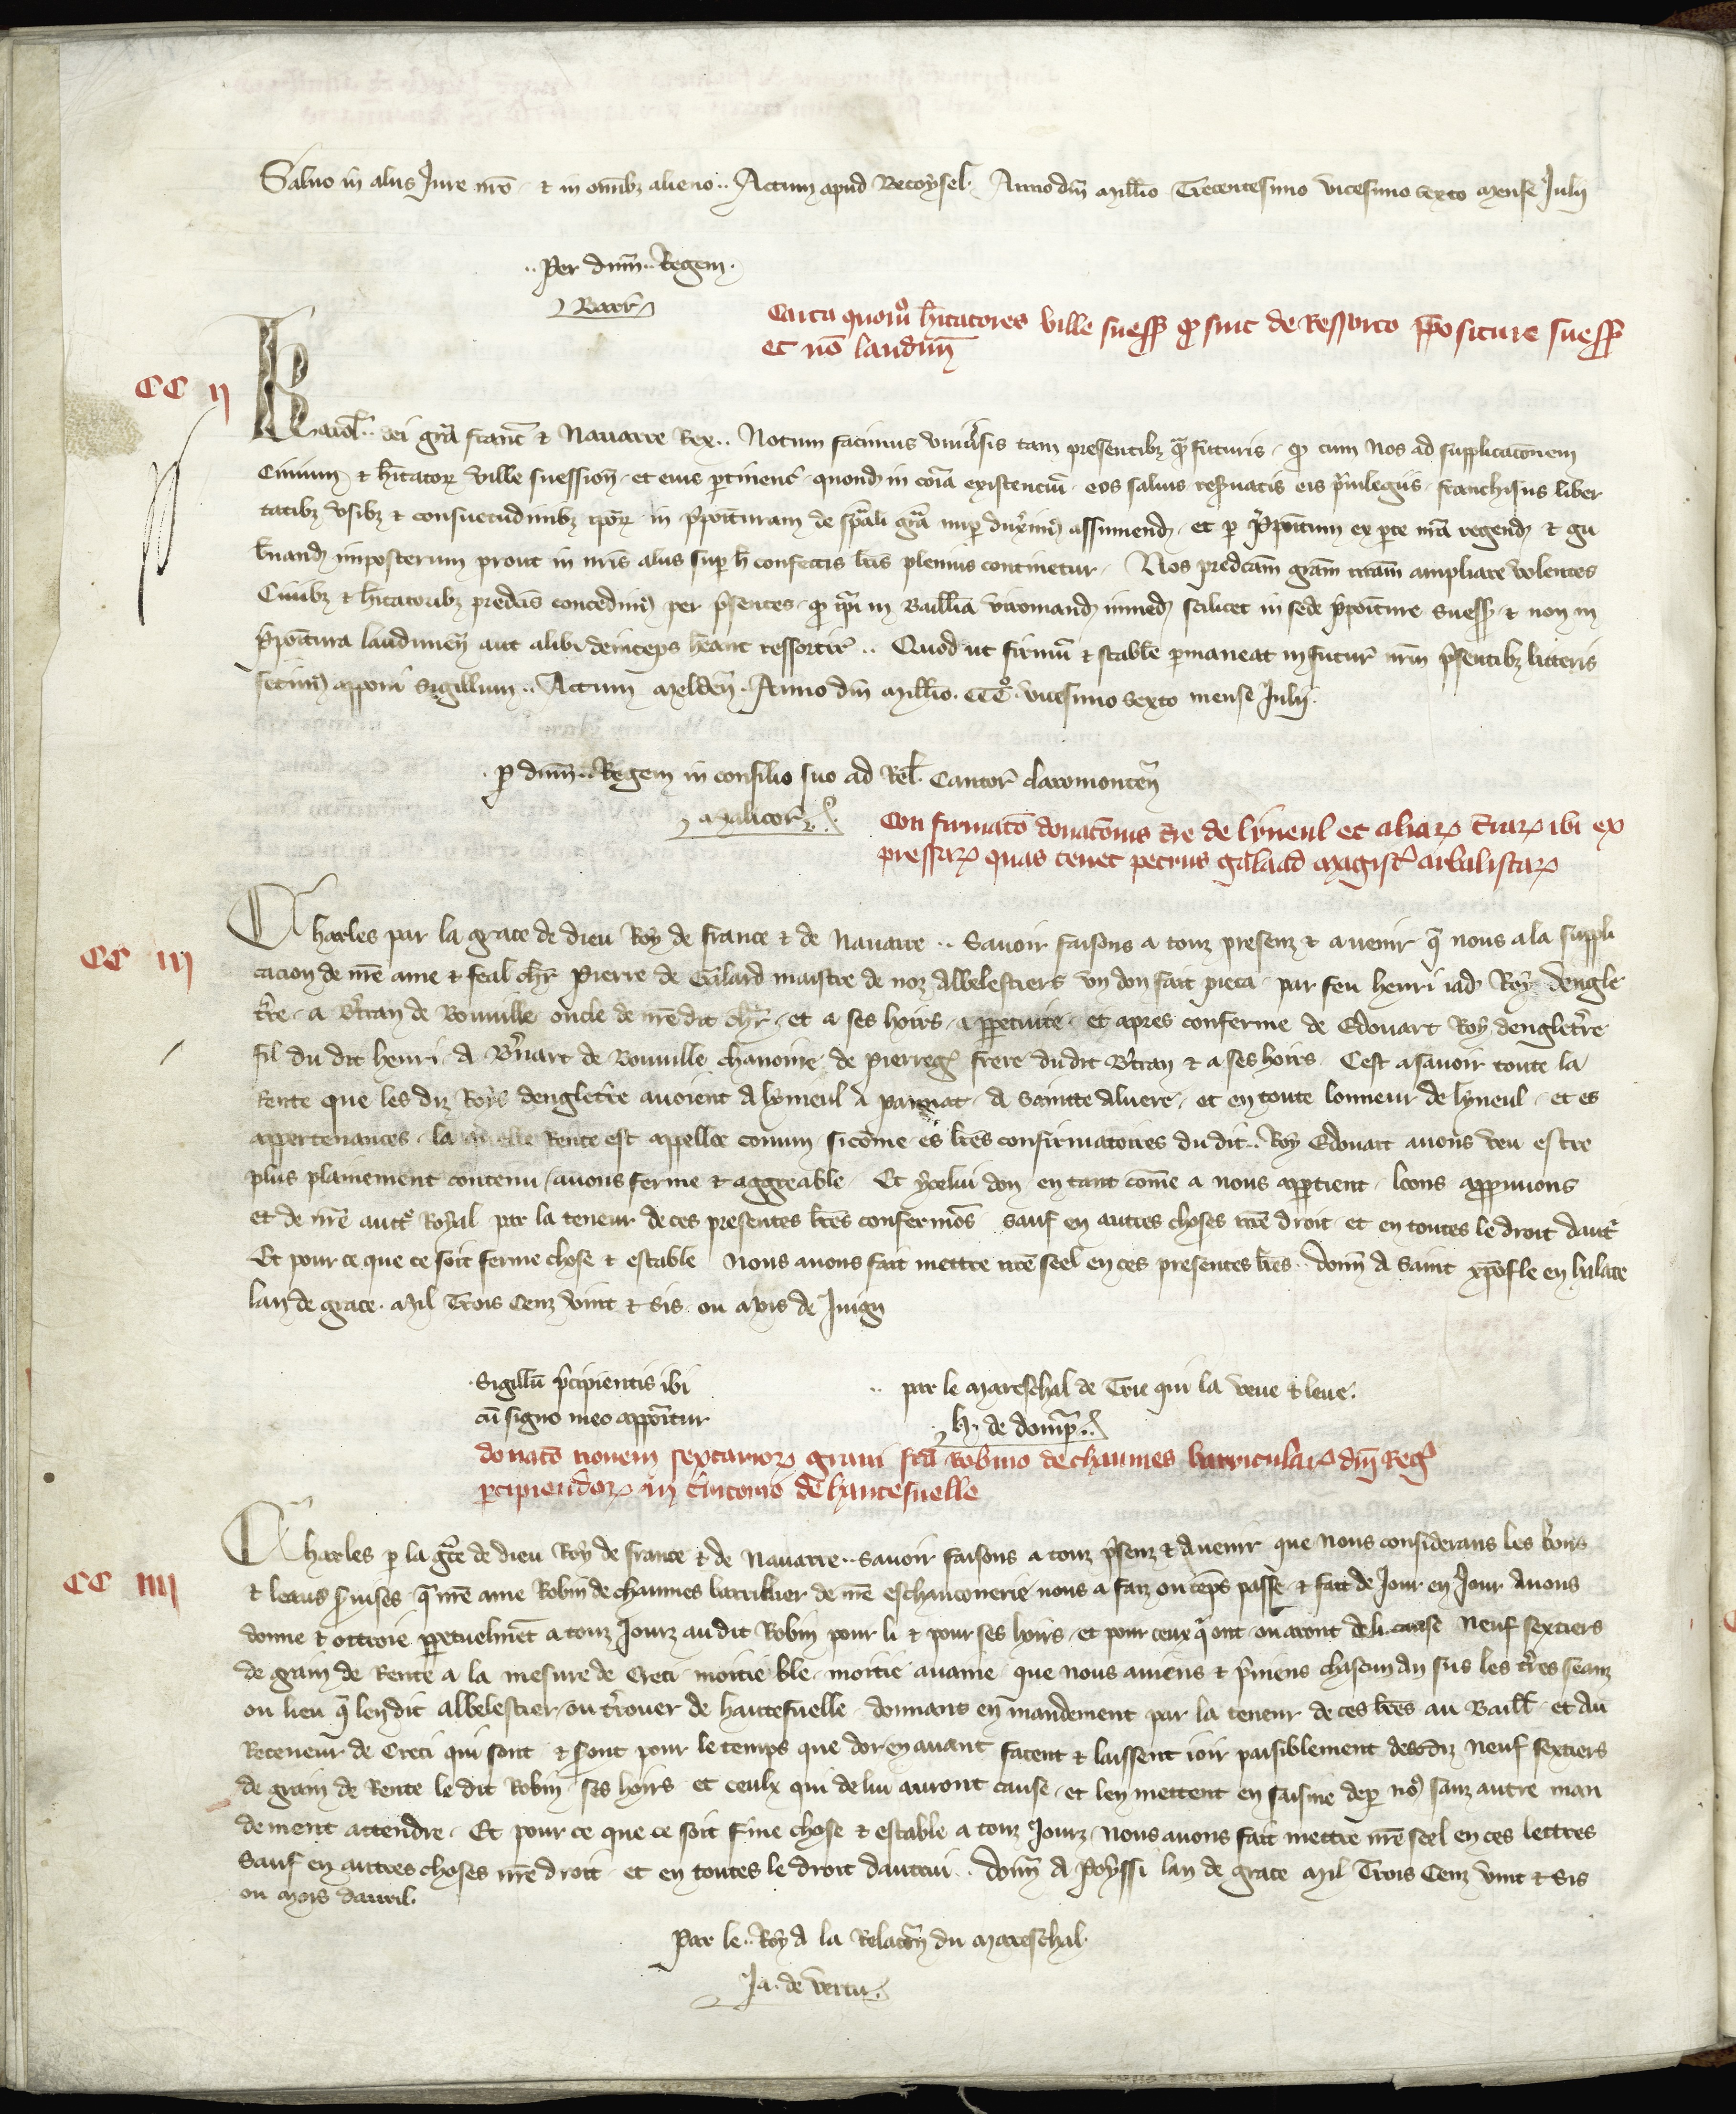 Saluo in aliis Jure nr̄o & in omībꝫ alieno .. Actum apud Becoysel. Anno dn̄i Mill̄io Trecentesimo vicesimo sexto mense Julij
.. Per dn̄m .. Regem.
Barr̄
Carta quorū hītatores ville suess̄ ꝙ sint de Ressorto p̄positure suess̄
et nō laudun̄
CC ij
Karol̄ .. dei gr̄a franc̄ & Nauarre Rex .. Notum facimus vniu̾sis tam presentibꝫ qͣ̄ futuris. ꝙ cum Nos ad supplicacōnem
Ciuium & hītatoꝝ ville suession̄. et eius ꝑtinenc̄. quondꝫ in cōīa existenciū. eos saluis reseruatis eis p̾uilegiis. franchisiis liber
tatibꝫ vsibꝫ & consuetudinibꝫ ip̄oꝝ in p̾positurām de sp̄ali gr̄a nuꝑ duxim⁹ assumendꝫ. et ꝑ P̾positum ex ꝑte nr̄a regendꝫ & gu
b̾nandꝫ imposterum prout in nr̄is aliis suꝑ h̄ confectis l̄ris plenius continetur. Nos predc̄am gr̄am nr̄am ampliare volentes
Ciuibꝫ & hītatoribꝫ predc̄is concedim⁹ per p̾sentes. ꝙ ip̄i in Bailliā viromandꝫ inmedꝫ scilicet in sede p̾positure suess̄ & non in
p̾positura laudunen̄ aut alibi deinceps hēant ressortir̄ .. Quod ut firmū & stabile ꝑmaneat in futur̄ nr̄m p̾sentibꝫ litteris
fecim⁹ apponi sigillum .. Actum Melden̄. Anno dn̄i Mill̄io. CCC̊. vicesimo sexto mense Julij.
ꝑ dn̄m .. Regem in consilio suo ad Rel̄. Cantor̄ claromonten̄
Malicor̄
Confirmatō donatōnis t̾re de lyneul et aliaꝝ t̾raꝝ ibi ex
pressaꝝ quas tenet petrus galaad magist̾ arbalistaꝝ
CC iij
Charles par la grace de dieu Roy de france & de Nauarre .. Sauoir faisons a touz presenz & auenir q̄ nous a la suppli
cacion de nr̄e ame & feal chr̄ Pierre de Galard maistre de noz Albelestiers vn don fait pieca. par feu henri iadꝫ Roy dengle
t̾re. a B̾tran de Bouuille oncle de nr̄e dit chr̄. et a ses hoirs. a ꝑpetuite. et apres conferme de Edouart Roy denglet̾re
fil du dit henri. A B̾nart de Bouuille chanoine de pierregꝫ frere du dit B̾tran & a ses hoirs. Cest asauoir toute la
Rente que les diz Roys denglet̾re auoient A lymeul a paunat. A sainte Aluere. et en toute lonneur de lymeul. et es
appertenances. la quelle Rente est appellee comun. sicōme es l̄res confirmatoires du dit .. Roy Edouart auons veu estre
plus plainement contenu / auons ferme & aggreable. Et ycelui don en tant cōme a nous appertient. loons appruuons
et de nr̄e auct̾ Royal par la teneur de ces presentes l̄res confermōs sauf en autres choses nr̄e droit et en toutes le droit daut̾
Et pour ce que ce soit ferme chose & estable Nous auons fait mettre nr̄e seel en ces presentes l̄res .. donn̄ A Saint xp̄ofle en halate
lan de grace. Mil Trois Cenz vint & Sis. ou Mois de Juign
Sigillū p̾cipientis ibi
cū signo meo apponitur
.. par le Mareschal de Trie qui la veue & leue.
H. de domp̄..
donatō nouem sextarioꝝ grani fc̄a Robino de chaumes barriculaꝝ dn̄i Reg̾
ꝑcipiendoꝝ in t̾ritorio de hautefuelle
CC iiij
Charles ꝑ la gr̄ce de dieu Roy de france & de Nauarre .. Sauoir faisons a touz p̾senz & Auenir que Nous considerans les bons
& leaus s̾uises q̄ nr̄e ame Robin de chaumes barrillier de nr̄e eschanconnerie nous a faiz ou tēps passe. & fait de Jour en Jour Auons
donne & ottroie ꝑpetuelmēt a touz Jourz au dit Robin pour li & pour ses hoirs. et pour ceux q̾ ont ou aront de li cause Neuf sextiers
de grain de Rente a la mesure de Creci moitie ble. moitie auaine que nous auiens & p̾niens chascun An sus les t̾res seanz
ou lieu q̄ len dit Albelestier / ou t̾rouer de hautefuelle donnans en mandement par la teneur de ces l̄res au Baill̄. et Au
Receueur de Creci qui sont & s̾ont pour le temps que dorenauant facent & laissent ioir paisiblement desdiz Neuf sextiers
de grain de Rente le dit Robin ses hoirs et ceulx qui de lui auront cause. et len mettent en saisine deꝑ no⁹ sanz autre man
dement attendre. Et pour ce que ce soit f̾me chose & estable a touz Jourz. Nous auons fait mettre nr̄e seel en ces lettres
Sauf en autres choses nr̄e droit et en toutes le droit dautrui .. donn̄ A Poyssi lan de grace Mil Trois Cenz vint & Sis
ou Mois dauril.
Par le .. Roy A la Relacōn̄ du Mareschal.
Ja. de vertu.